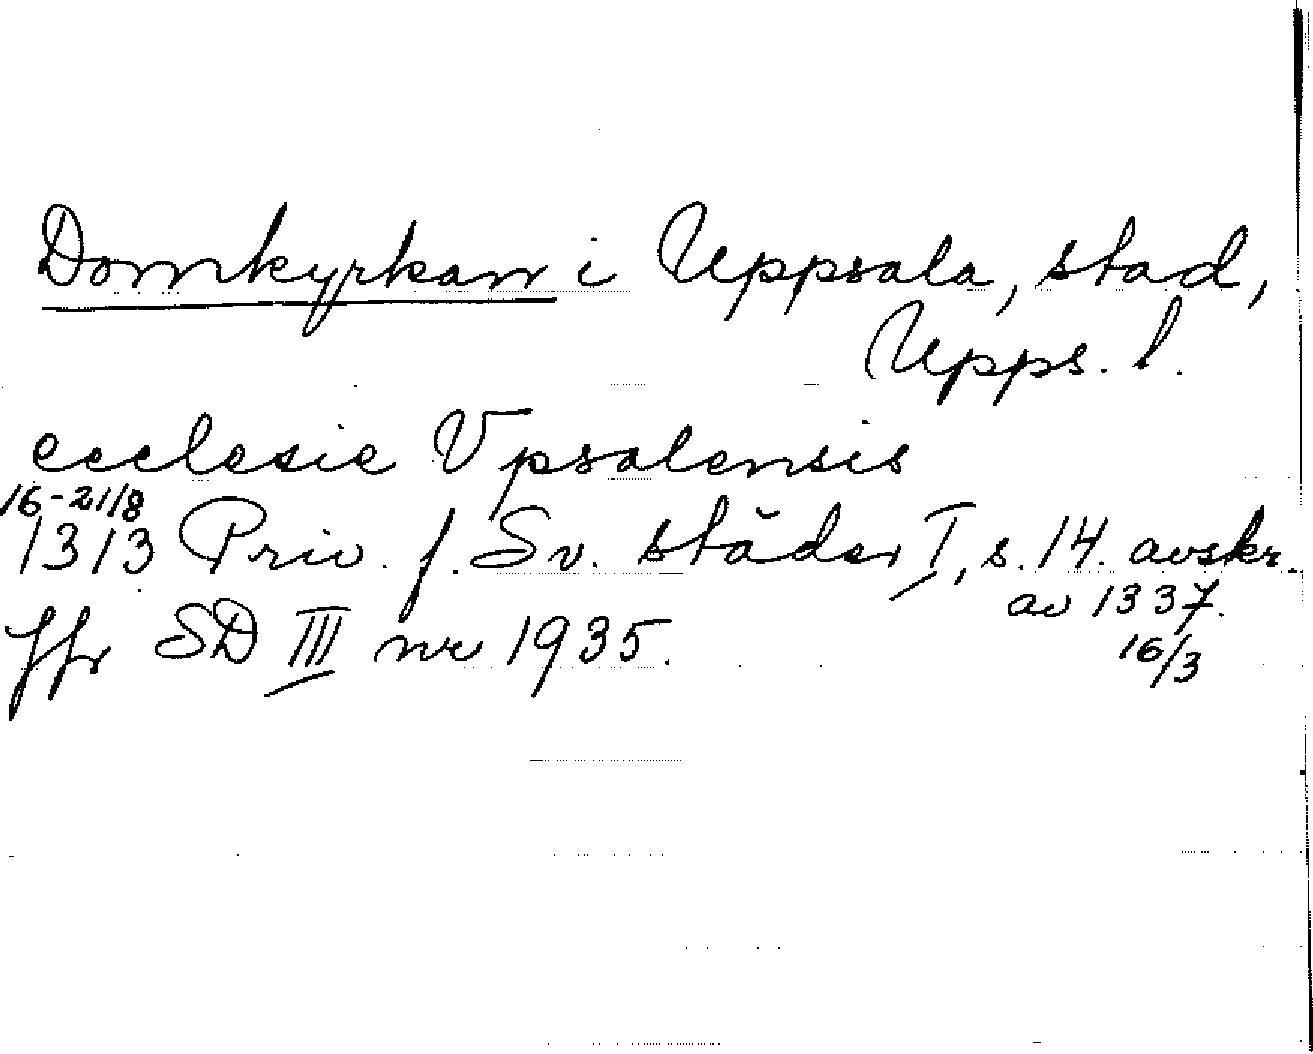 Domkyrkan i Uppsala, stad,
Upps. l.
ecclesie Vpsalensis
16-21/8
1313 Priv. f. Sv. städer I, s. 14. avskr.
av 1337.
16/3
Jfr SD III nr 1935.